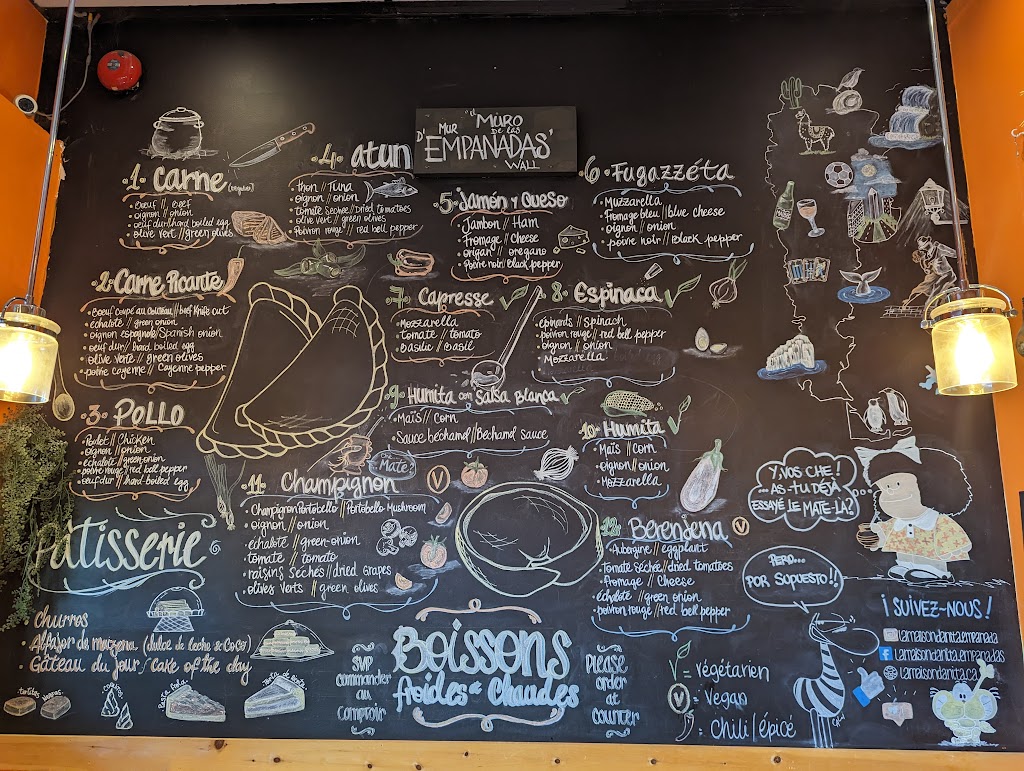 "el MURO
MUR de las
D' EMPANADAS'
WALL
.1. Carne (regular)
• bœuf // beef
oignon // onion
oeuf dur // hard boiled egg
olive vert // green olives
2. Carne Picante
• Bœuf coupé au couteau // beef knife cut
échalote // green onion
oignon espagnole // Spanish onion
oeuf dur // hard boiled egg
olive verte // green olives
• poivre cayenne // Cayenne pepper
3. POLLO
• Poulet // Chicken
oignon // onion
échalote // green onion
poivre rouge // red bell pepper
• oeuf dur // hard-boiled egg
.4. atun
• thon // Tuna
oignon // onion
tomate séchée // Dried tomatoes
olive vert // green olives
Poivron rouge // red bell pepper
5. Jamón y Queso
Jambon // Ham
Fromage // Cheese
origan // oregano
• Poivre noir // Black pepper
.6. Fugazzéta
• Muzzarella
fromage bleu // blue cheese
oignon // onion
• poivre noir // Black pepper
.7. Capresse
• Mozzarella
tomate // tomato
• basilic // basil
.8. Espinaca
épinards // spinach
poivron rouge // red bell pepper
oignon // onion
Mozzarella
9. Humita con Salsa blanca
• Maïs // Corn
Sauce béchamel // Béchamel sauce
10. Humita
Maïs // corn
oignon // onion
• Mozzarella
.11. Champignon
• Champignon Portobello // Portobello Mushroom
• oignon // onion
échalote // green-onion
tomate // tomato
raisins séchés // dried grapes
• olives verts // green olives
Mate?
V
12. Berenjena V
• Aubergine // eggplant
Tomate séchée // dried tomatoes
• fromage // Cheese
échalote // green onion
poivron rouge // red bell pepper
Pâtisserie
Churros
Alfajor de maizena (dulce de leche & coco)
• Gâteau du jour / cake of the day
tortitas negras
Pasta frola
Boissons
froides & Chaudes
SVP
commander
au
comptoir
Please
order
at
counter
V = Végétarien
V = Vegan
= Chili / épicé
Y, vos che!
...As-tu déjà
essayé le mate-là?
Pero...
por supuesto!!
¡SUIVEZ-NOUS!
lamaisondanitta.empanada
lamaisondanitta.empanadas
lamaisondanitta.ca